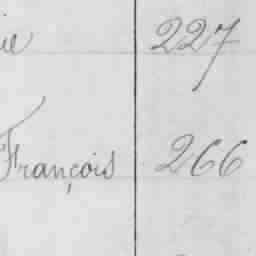 ie 227
François 266